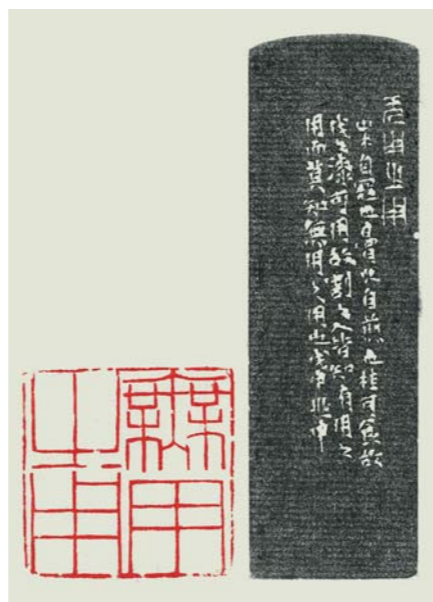 无用之用
山木自寇也膏火自煎也桂可食故
伐之漆可用故割之人皆知有用之
用而莫知無用之用也戊申
無用
之用